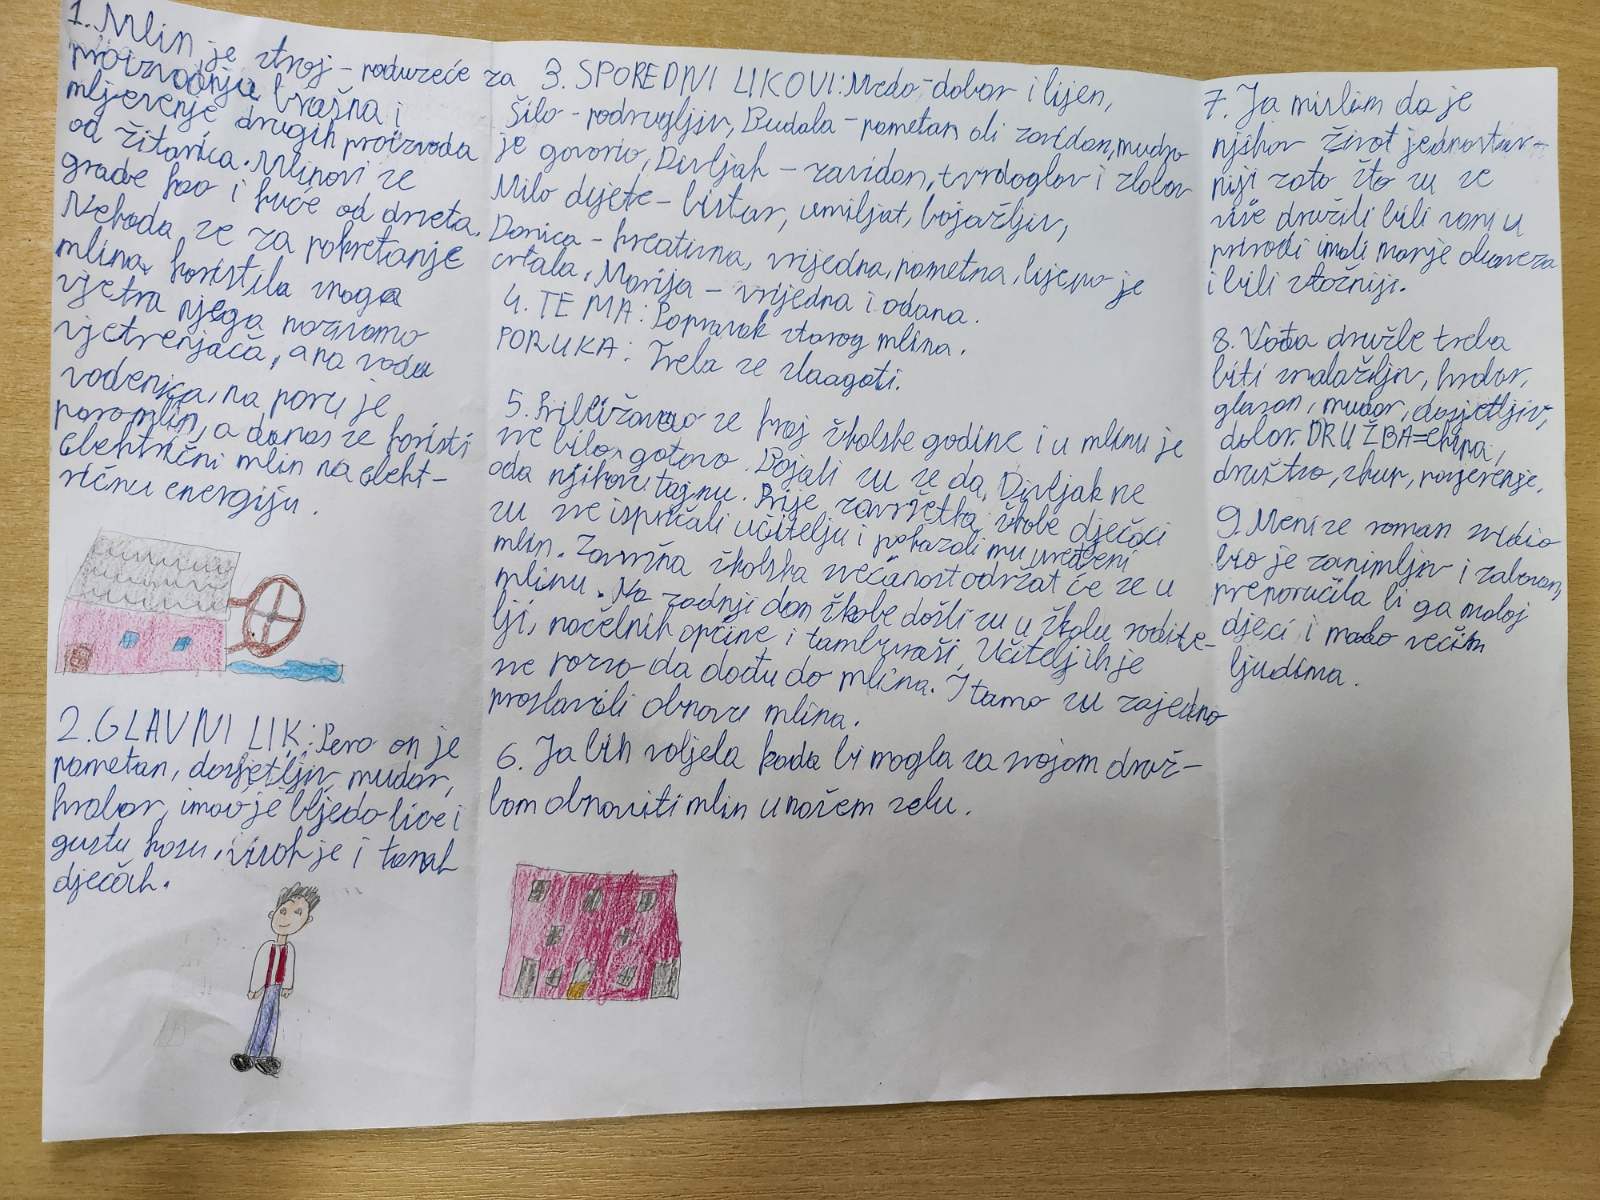 1. Mlin je stroj - poduzeće za
proizvodnju brašna i
mljevenje drugih proizvoda
od žitarica. Mlinovi se
grade kao i kuće od drveta.
Nekada se za pokretanje
mlina koristila snaga
vjetra njega nazivamo
vjetrenjača, a na vodu
vodenica, na paru je
paromlin, a danas se koristi
električni mlin na elekt-
ričnu energiju.
2. GLAVNI LIK: Pero on je
pametan, dosjetljiv, mudar,
hrabar, imao je blijedo lice i
gustu kosu, visok je i tanak
dječak.
3. SPOREDNI LIKOVI: Medo - dobar i lijen,
Šilo - podrugljiv, Budala - pametan ali zavidan, mudro
je govorio, Divljak - zavidan, tvrdoglav i zloban
Milo dijete - bistar, umiljat, bojažljiv,
Danica - kreativna, vrijedna, pametna, lijepo je
crtala, Marija - vrijedna i odana.
4. TEMA: Popravak starog mlina.
PORUKA: Treba se slagati.
5. Približavao se kraj školske godine i u mlinu je
sve bilo gotovo. Bojali su se da Divljak ne
oda njihovu tajnu. Prije završetka škole dječaci
su sve ispričali učitelju i pokazali mu uređeni
mlin. Završna školska svečanost održat će se u
mlinu. Na zadnji dan škole došli su u školu rodite-
lji, načelnik općine i tamburaši. Učitelj ih je
sve pozvo da dođu do mlina. I tamo su zajedno
proslavili obnovu mlina.
6. Ja bih voljela kada bi mogla sa svojom druž-
bom obnoviti mlin u našem selu.
7. Ja mislim da je
njihov život jednostav-
niji zato što su se
više družili bili vani u
prirodi imali manje obaveza
i bili složniji.
8. Vođa družbe treba
biti snalažljiv, hrabar,
glasan, mudar, dosjetljiv,
dobar. DRUŽBA=ekipa,
društvo, skup, povjerenje.
9. Meni se roman svidio
bio je zanimljiv i zabavan,
preporučila bi ga maloj
djeci i malo većim
ljudima.